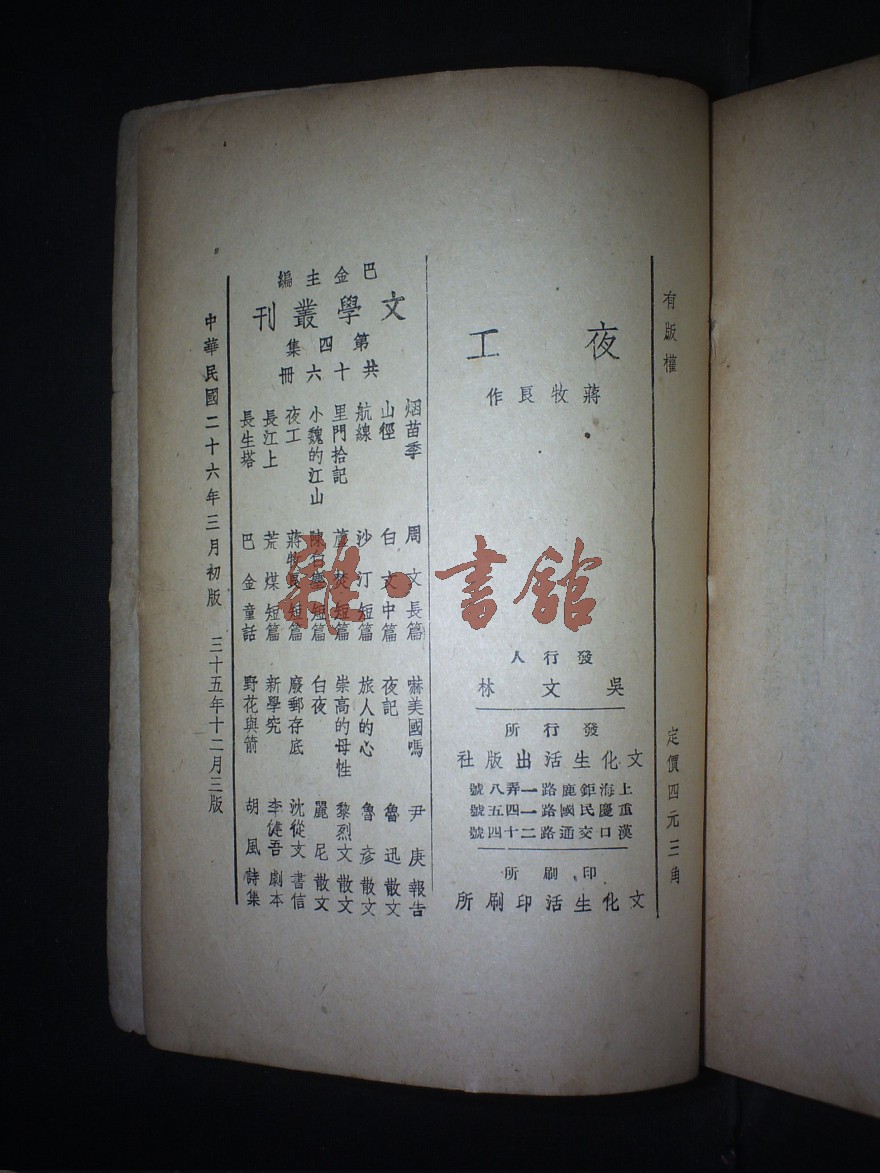 有版權
定價四元三角
夜工
蔣牧良作
發行人
吳文林
發行所
文化生活出版社
上海鉅鹿路一弄八號
重慶民國路一四五號
漢口交通路二十四號
印刷所
文化生活印刷所
巴金主編
文學叢刊
第四集
共十六冊
烟苗季 周文 長篇
山徑 白文 中篇
航線 沙汀 短篇
里門拾記 蘆焚 短篇
小魏的江山 陳白塵 短篇
夜工 蔣牧良 短篇
長江上 荒煤 短篇
長生塔 巴金 童話
嚇美國嗎 尹庚 報告
夜記 魯迅 散文
旅人的心 魯彥 散文
崇高的母性 黎烈文 散文
白夜 麗尼 散文
廢郵存底 沈從文 書信
新學究 李健吾 劇本
野花與箭 胡風 詩集
中華民國二十六年三月初版 三十五年十二月三版
雜·書館